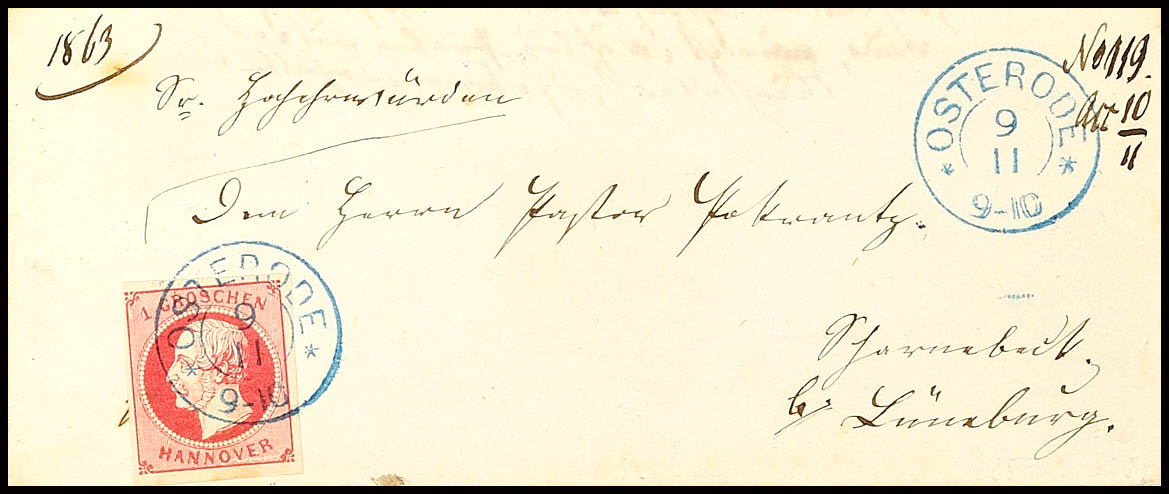 1863
No 119.
Acc 10/11
Sr. Hochehrwürden
Dem Herrn Pastor Pokrantz.
Scharnebeck.
b/ Lüneburg.
OSTERODE
9
11
9-10
OSTERODE
9
11
9-10
1 GROSCHEN
HANNOVER